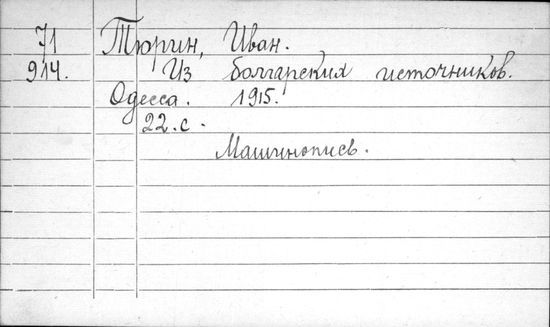 71 Тюрин, Иван.
914. Из болгарских источников.
Одесса. 1915.
22.с.
Машинопись.